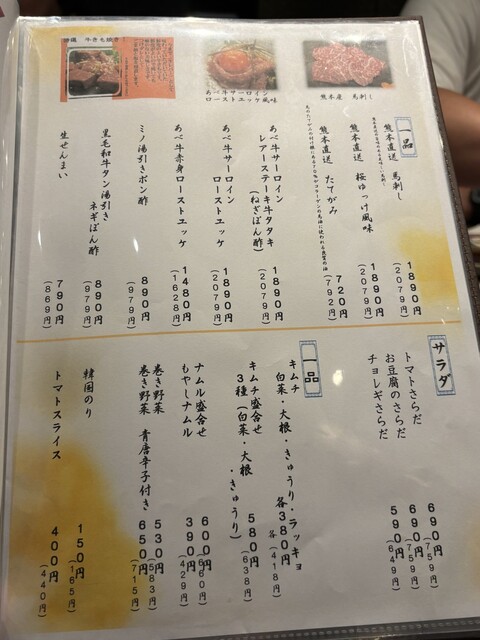 あべ牛サーロイン
ローストエッケ風味
熊本産 馬刺し
一品
熊本直送 馬刺し
1890円
(2079円)
熊本直送 桜ゆっけ風味
1890円
(2079円)
熊本直送 たてがみ
720円
(792円)
あべ牛サーロイン
レアーステーキ牛タタキ
(ねぎぽん酢)
1890円
(2079円)
あべ牛サーロイン
ローストエッケ
1890円
(2079円)
あべ牛赤身ローストエッケ
1480円
(1628円)
ミノ湯引きポン酢
890円
(979円)
黒毛和牛タン湯引き
ネギぽん酢
890円
(979円)
生せんまい
790円
(869円)
サラダ
トマトさらだ
690円
(759円)
お豆腐のさらだ
690円
(759円)
チョレギさらだ
590円
(649円)
一品
キムチ
白菜・大根・きゅうり・ラッキョ
各380円
各(418円)
キムチ盛合せ
3種(白菜・大根・きゅうり)
580円
(638円)
ナムル盛合せ
600円
(660円)
もやしナムル
390円
(429円)
巻き野菜
530円
(583円)
巻き野菜 青唐辛子付き
650円
(715円)
韓国のり
150円
(165円)
トマトスライス
400円
(440円)